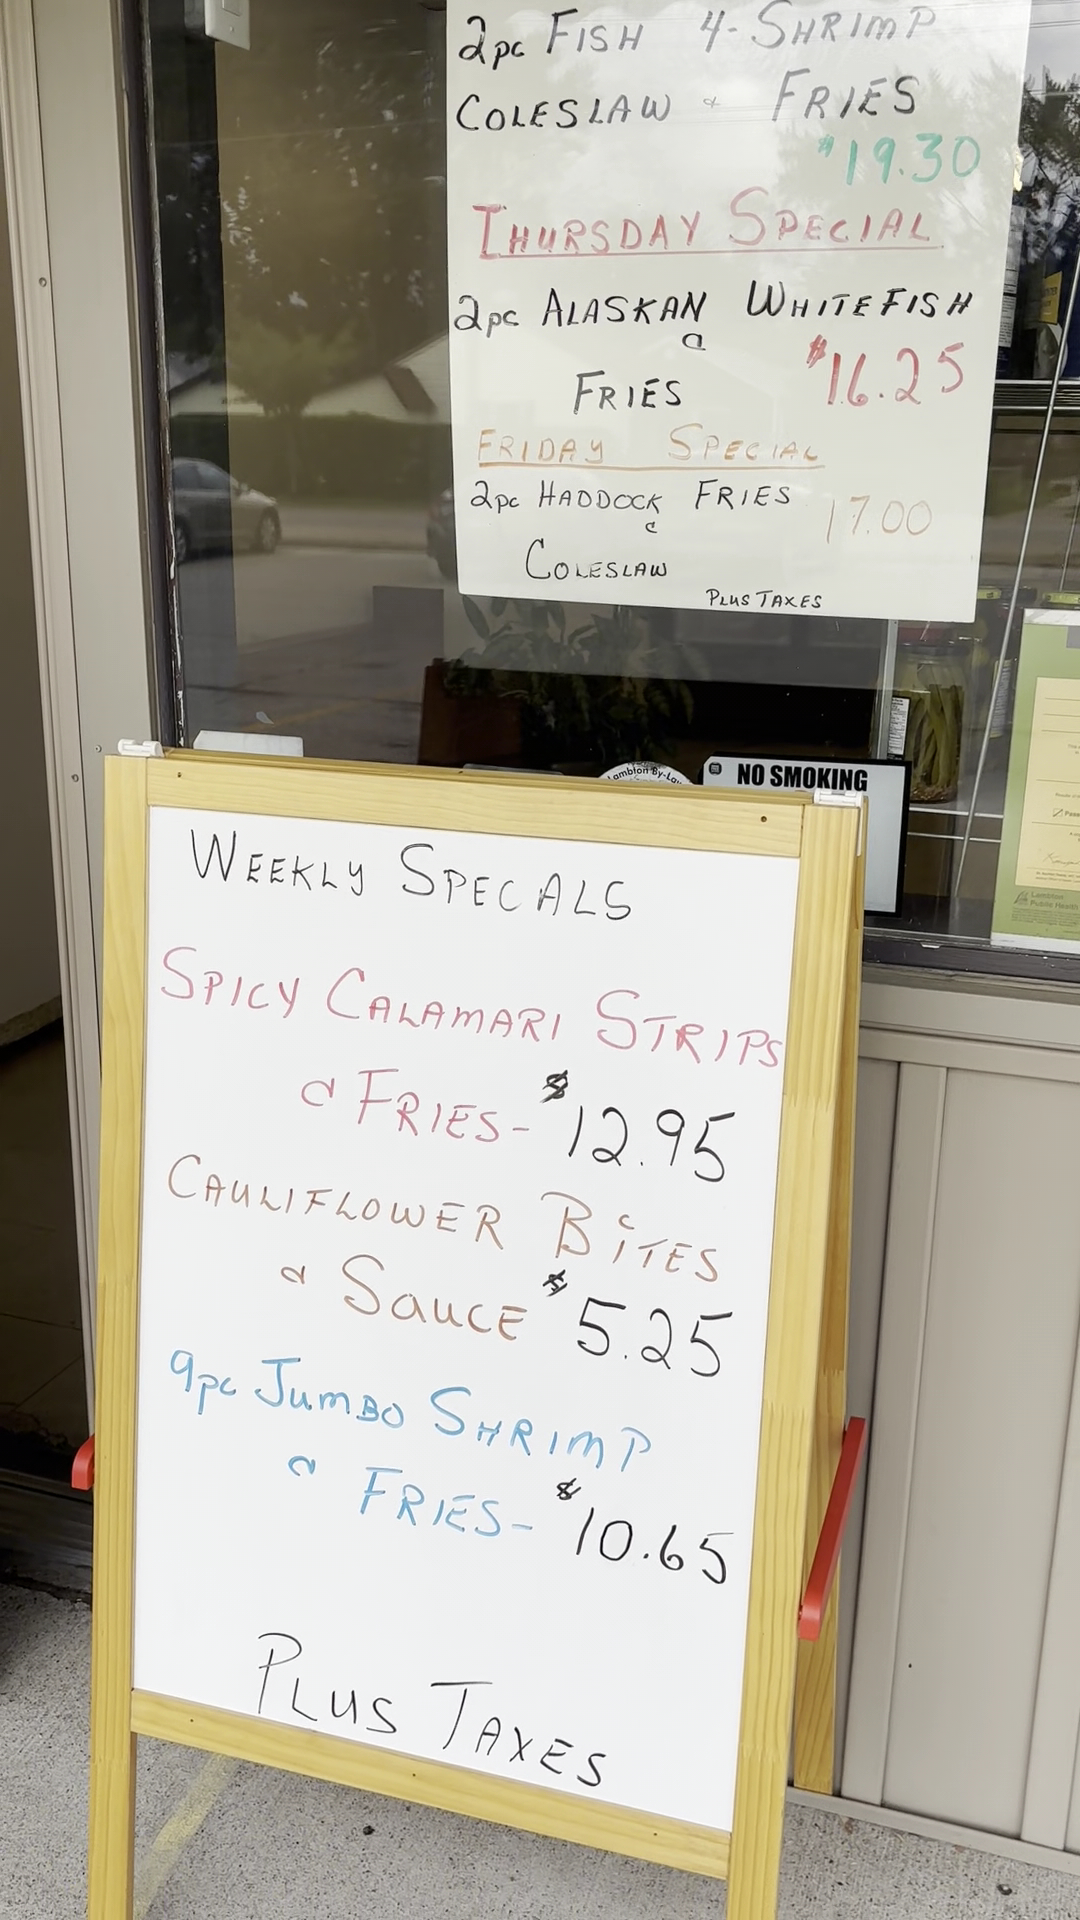 2pc FISH 4-SHRIMP
COLESLAW & FRIES
$19.30
THURSDAY SPECIAL
2pc ALASKAN WHITEFISH
&
FRIES $16.25
FRIDAY SPECIAL
2pc HADDOCK FRIES 17.00
&
COLESLAW
PLUS TAXES
Lambton By-Law
NO SMOKING
Lambton
Public Health
WEEKLY SPECALS
SPICY CALAMARI STRIPS
& FRIES- $12.95
CAULIFLOWER BITES
& SAUCE $5.25
9pc JUMBO SHRIMP
& FRIES- $10.65
PLUS TAXES